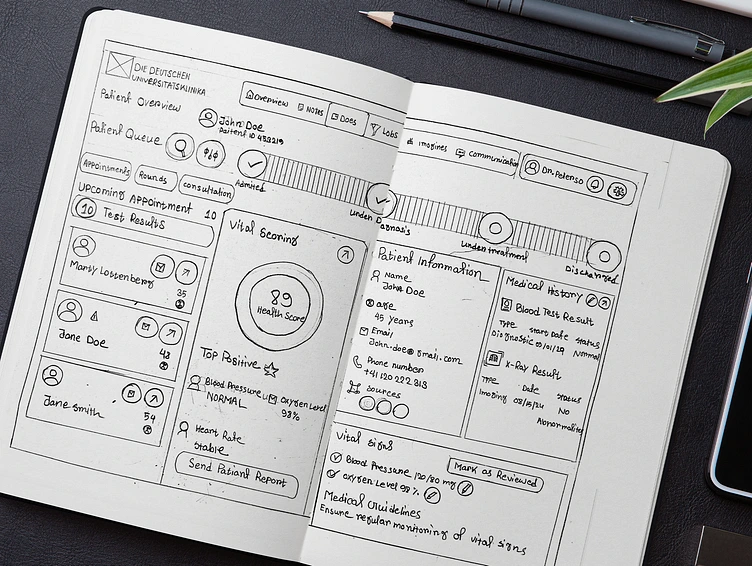 DIE DEUTSCHEN
UNIVERSITÄTSKLINIKA
Overview
NOTES
Docs
Labs
imagines
communication
Dr. Polenso
Patient Overview
John Doe
Patient ID 453219
Patient Queue
Appoinsments
Rounds
consultation
Admited
under Diagnosis
under treatment
Discharged
UPCOMING APPOINTMENT 10
10 Test Results
Marty Lottenberg
35
Jane Doe
43
Jane Smith
54
Vital Scoring
89
Health Score
Top Positive
Blood Pressure
NORMAL
Oxygen Level
98%
Heart Rate
Stable
Send Patient Report
Patient Information
Name
John Doe
age
45 years
Email
John.doe@gmail.com
Phone number
+41 20 222 313
Sources
Medical History
Blood Test Result
Type Start Date Status
Diagnostic Normal
X-Ray Result
Type Date Status
Imaging 08/15/24 No
Abnormalities
Vital Signs
Mark as Reviewed
Blood Pressure 120/80 mg
oxygen Level 98 %
Medical Guidelines
Ensure regular monitoring of vital signs